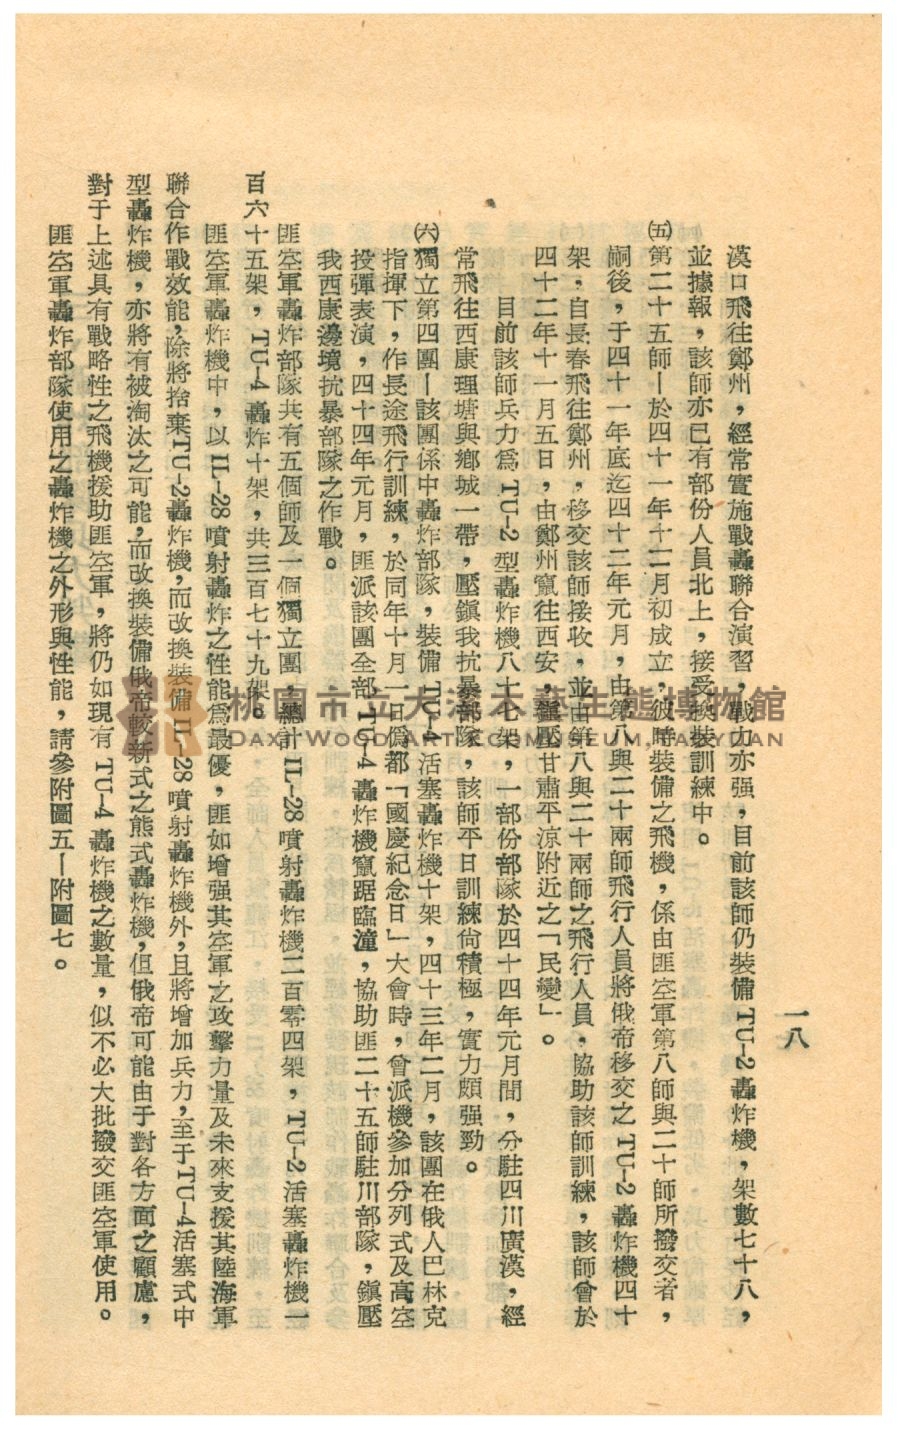 一八
漢口飛往鄭州，經常實施戰轟聯合演習，戰力亦强，目前該師仍裝備TU-2轟炸機，架數七十八，
並據報，該師亦已有部份人員北上，接受換裝訓練中。
㈤第二十五師—於四十一年十二月初成立，彼時裝備之飛機，係由匪空軍第八師與二十師所撥交者，
嗣後，于四十一年底迄四十二年元月，由第八與二十兩師飛行人員將俄帝移交之TU-2轟炸機四十
架，自長春飛往鄭州，移交該師接收，並由第八與二十兩師之飛行人員，協助該師訓練，該師曾於
四十二年十一月五日，由鄭州竄往西安，鎮壓甘肅平涼附近之「民變」。
目前該師兵力爲TU-2型轟炸機八十七架，一部份部隊於四十四年元月間，分駐四川廣漢，經
常飛往西康理塘與鄉城一帶，壓鎭我抗暴部隊，該師平日訓練尙積極，實力頗强勁。
㈥獨立第四團—該團係中轟炸部隊，裝備TU-4活塞轟炸機十架，四十三年二月，該團在俄人巴林克
指揮下，作長途飛行訓練，於同年十月一日僞都「國慶紀念日」大會時，曾派機參加分列式及高空
投彈表演，四十四年元月，匪派該團全部TU-4轟炸機竄踞臨潼，協助匪二十五師駐川部隊，鎭壓
我西康邊境抗暴部隊之作戰。
匪空軍轟炸部隊共有五個師及一個獨立團，總計IL-28噴射轟炸機二百零四架，TU-2活塞轟炸機一
百六十五架，TU-4轟炸十架，共三百七十九架。
匪空軍轟炸機中，以IL-28噴射轟炸之性能爲最優，匪如增强其空軍之攻擊力量及未來支援其陸海軍
聯合作戰效能，除將捨棄TU-2轟炸機，而改換裝備IL-28噴射轟炸機外，且將增加兵力，至于TU-4活塞式中
型轟炸機，亦將有被淘汰之可能，而改換裝備俄帝較新式之熊式轟炸機，但俄帝可能由于對各方面之顧慮，
對于上述具有戰略性之飛機援助匪空軍，將仍如現有TU-4轟炸機之數量，似不必大批撥交匪空軍使用。
匪空軍轟炸部隊使用之轟炸機之外形與性能，請參附圖五—附圖七。
桃園市立大溪木藝生態博物館
DAXI WOOD ART ECOMUSEUM, TAOYUAN